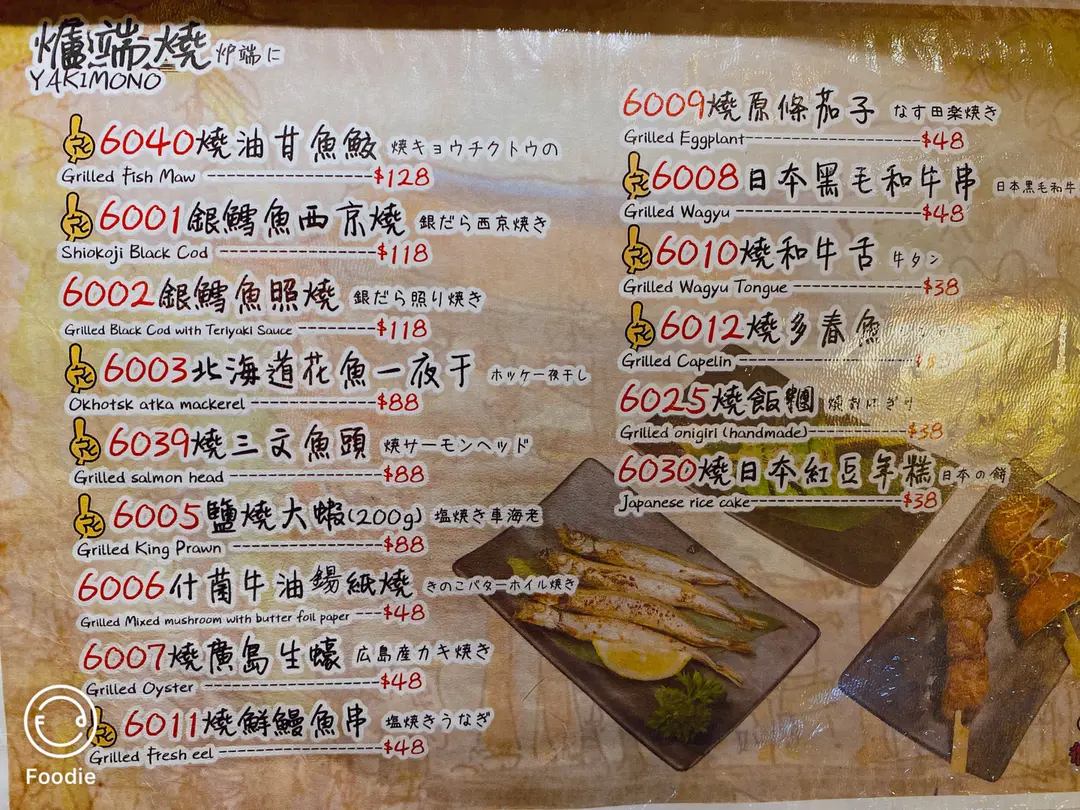 爐端燒 炉端に
YAKIMONO
6040燒油甘魚鮫 焼キョウチクトウの
Grilled Fish Maw $128
6001銀鱈魚西京燒 銀だら西京焼き
Shiokoji Black Cod $118
6002銀鱈魚照燒 銀だら照り焼き
Grilled Black Cod with Teriyaki Sauce $118
6003北海道花魚一夜干 ホッケ一夜干し
Okhotsk atka mackerel $88
6039燒三文魚頭 焼サーモンヘッド
Grilled salmon head $88
6005鹽燒大蝦(200g) 塩焼き車海老
Grilled King Prawn $88
6006什菌牛油錫紙燒 きのこバターホイル焼き
Grilled Mixed mushroom with butter foil paper $48
6007燒廣島生蠔 広島産カキ焼き
Grilled Oyster $48
6011燒鮮鰻魚串 塩焼きうなぎ
Grilled fresh eel $48
6009燒原條茄子 なす田楽焼き
Grilled Eggplant $48
6008日本黑毛和牛串 日本黒毛和牛
Grilled Wagyu $48
6010燒和牛舌 牛タン
Grilled Wagyu Tongue $38
6012燒多春魚
Grilled Capelin
6025燒飯糰 焼おにぎり
Grilled onigiri (handmade) $38
6030燒日本紅豆年糕 日本の餅
Japanese rice cake $38
Foodie